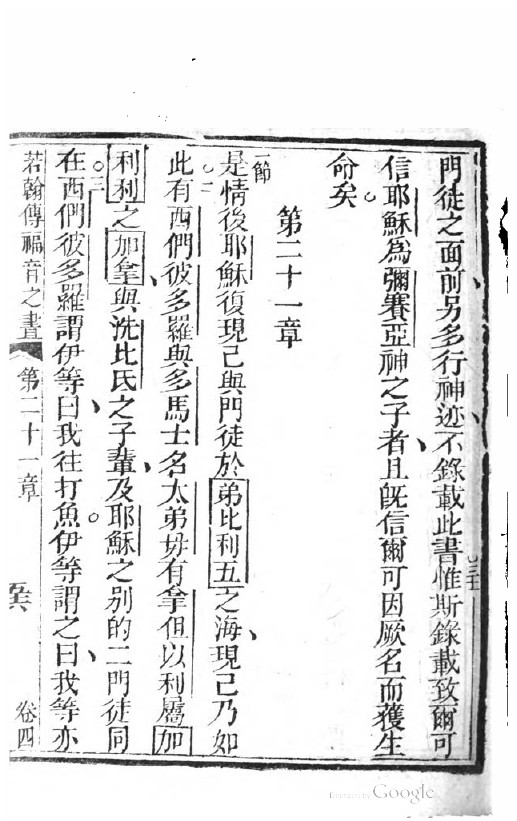 門徒之面前另多行神迹不錄載此書惟斯錄載致爾可
信耶穌為彌賽亞神之子者且既信爾可因厥名而獲生
命矣
第二十一章
一節
是情後耶穌復現己與門徒於弟比利五之海現己乃如
此有西們彼多羅與多馬士名太弟毋有拿但以利屬加
利利之加拿與洗比氏之子輩及耶穌之別的二門徒同
在西們彼多羅謂伊等曰我往打魚伊等謂之曰我等亦
若翰傳福音之書
第二十一章
卷四
Google